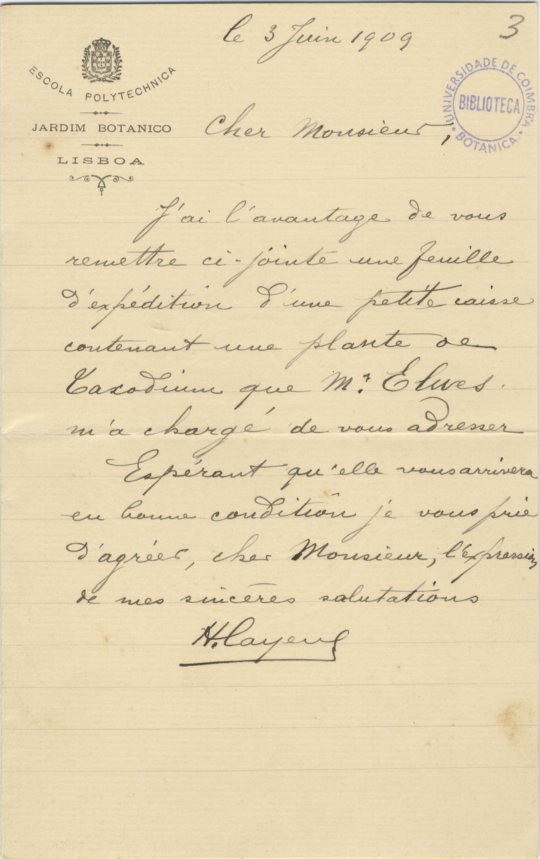 le 3 Juin 1909
3
ESCOLA POLYTECHNICA
JARDIM BOTANICO
LISBOA
UNIVERSIDADE DE COIMBRA
BIBLIOTECA
BOTANICA
Cher Monsieur,
J'ai l'avantage de vous
remettre ci-jointe une feuille
d'expédition d'une petite caisse
contenant une plante de
Taxodium que Mr. Elwes.
m'a chargé de vous adresser
Espérant qu'elle vous arrivera
en bonne condition je vous prie
d'agréer, cher Monsieur, l'expression
de mes sincères salutations
H. Cayeux